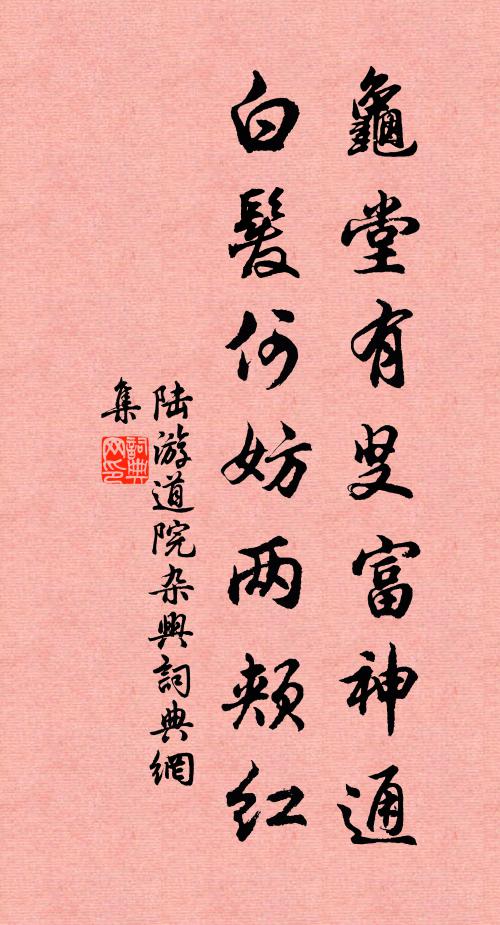 龜堂有叟富神通
白髮何妨两頰紅
陆游道院杂興詞典網
集
詞典网印